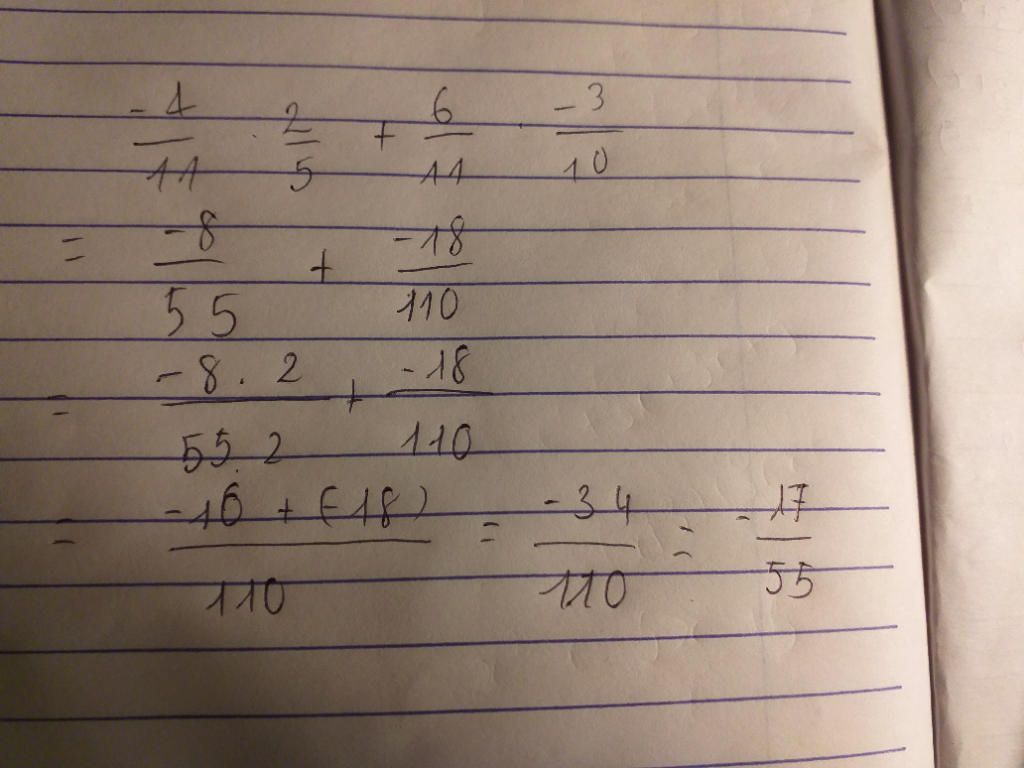 -4/11 . 2/5 + 6/11 . -3/10
= -8/55 + -18/110
= -8.2/55.2 + -18/110
= -16+(-18)/110 = -34/110 = -17/55